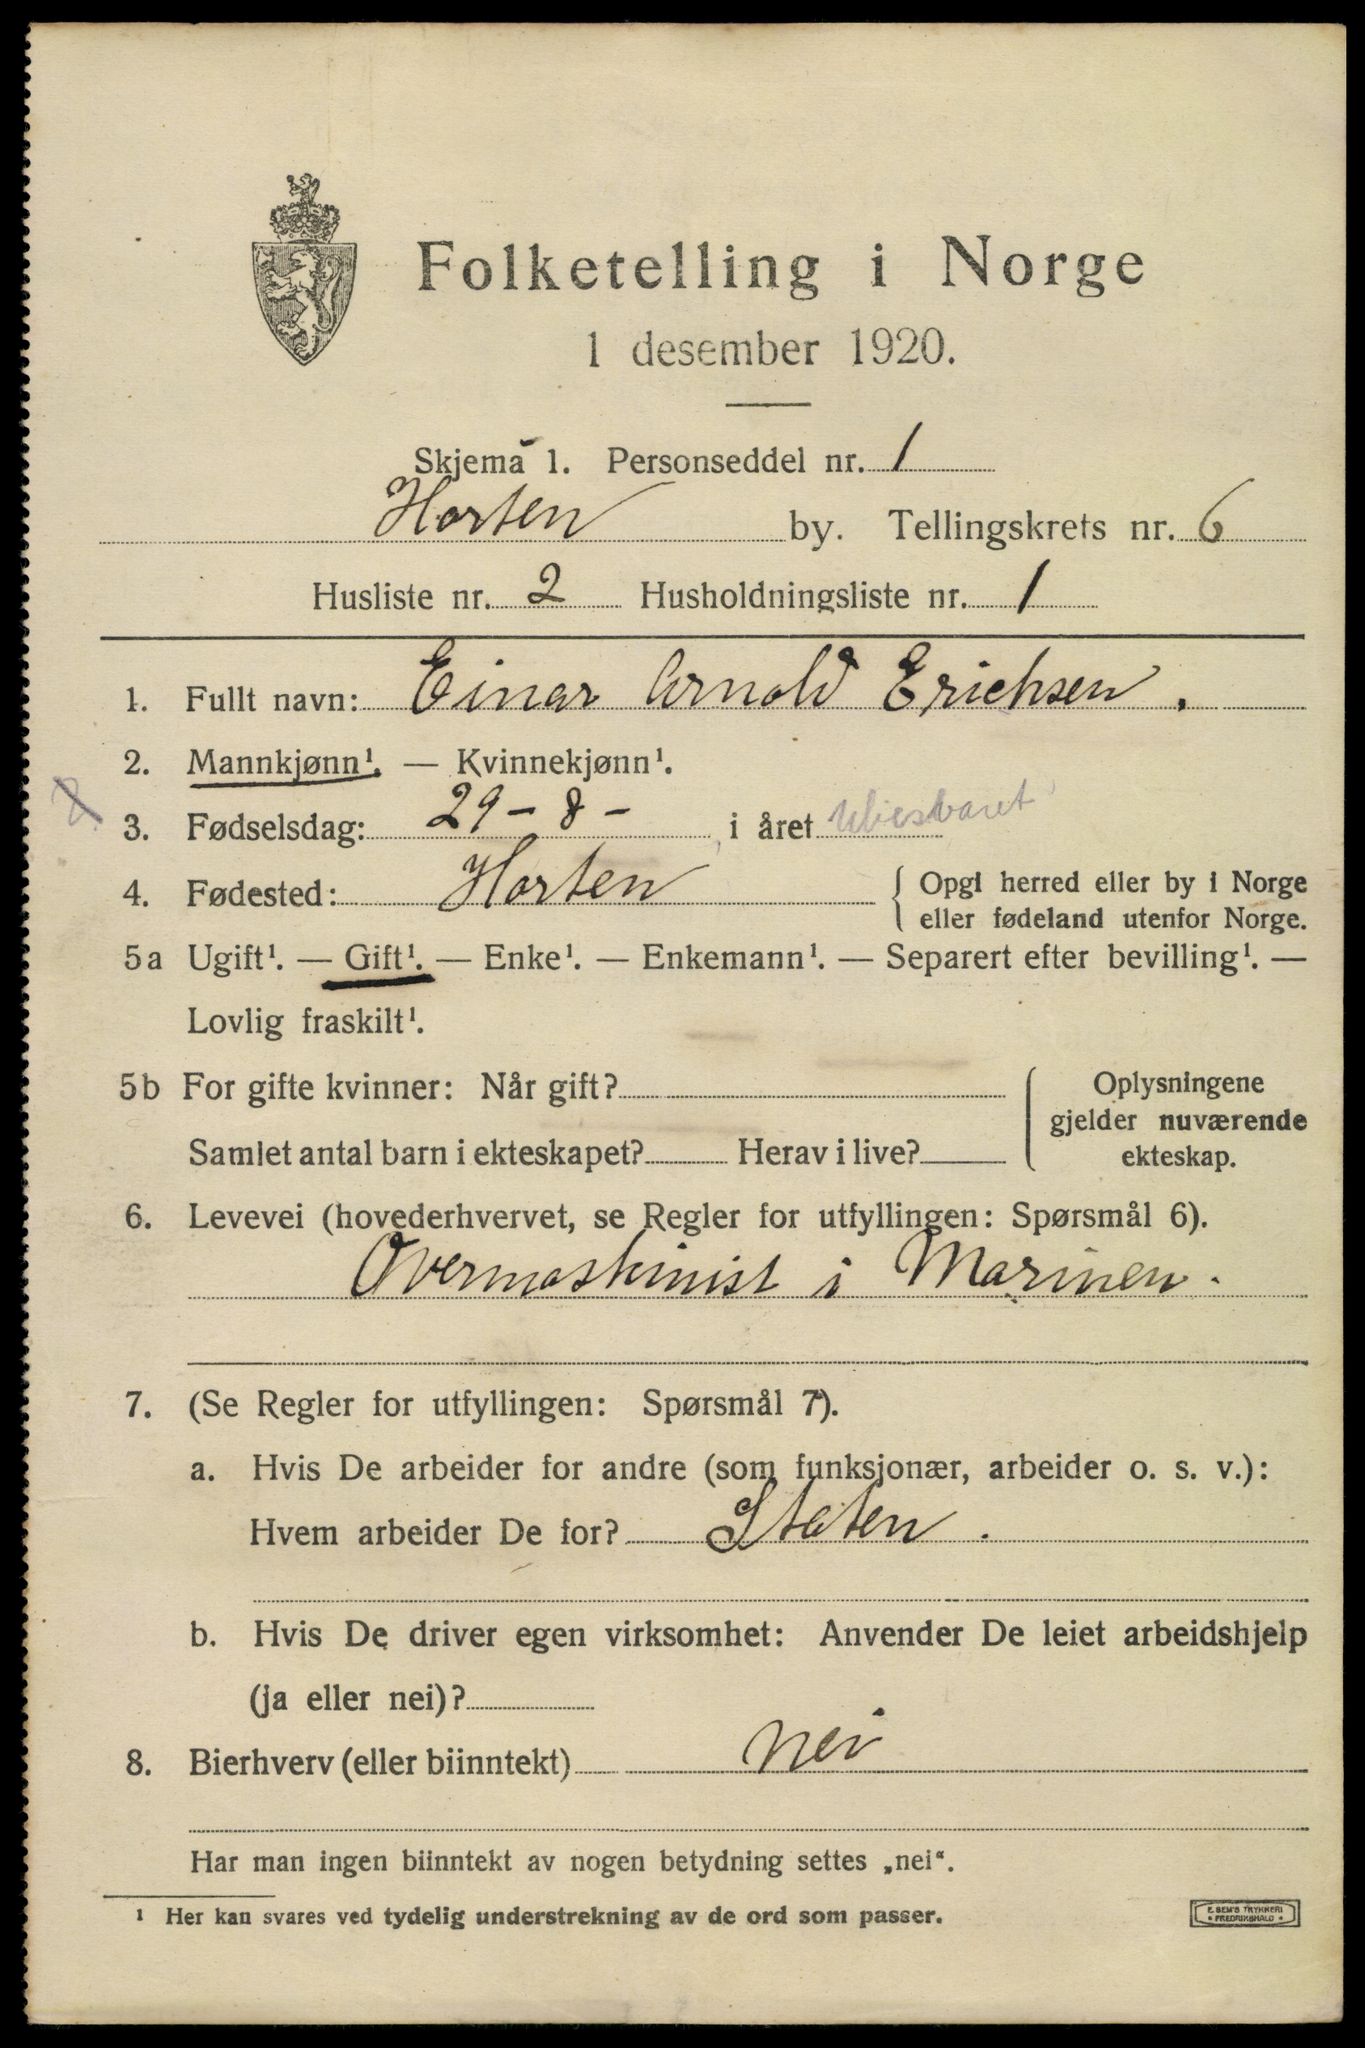 Folketelling i Norge
1 desember 1920.
Skjema 1. Personseddel nr. 1
Horten by. Tellingskrets nr. 6
Husliste nr. 2 Husholdningsliste nr. 1
1. Fullt navn: Einar Arnold Erichsen.
2. Mannkjønn¹. — Kvinnekjønn¹.
3. Fødselsdag: 29 - 8 - , i året Ubesvaret
4. Fødested: Horten { Opgi herred eller by i Norge
eller fødeland utenfor Norge.
5a Ugift¹. — Gift¹. — Enke¹. — Enkemann¹. — Separert efter bevilling¹. —
Lovlig fraskilt¹.
5b For gifte kvinner: Når gift?
Samlet antal barn i ekteskapet? Herav i live?
Oplysningene
gjelder nuværende
ekteskap.
6. Levevei (hovederhvervet, se Regler for utfyllingen: Spørsmål 6).
Overmaskinist i Marinen.
7. (Se Regler for utfyllingen: Spørsmål 7).
a. Hvis De arbeider for andre (som funksjonær, arbeider o. s. v.):
Hvem arbeider De for? Staten.
b. Hvis De driver egen virksomhet: Anvender De leiet arbeidshjelp
(ja eller nei)?
8. Bierhverv (eller biinntekt) nei
Har man ingen biinntekt av nogen betydning settes „nei“.
¹ Her kan svares ved tydelig understrekning av de ord som passer.
E. SEM'S TRYKKERI
• FREDRIKSHALD •